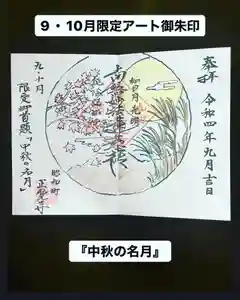 9・10月限定アート御朱印
奉拝
令和四年九月吉日
如日月光明
九・十月
限定御首題「中秋の名月」
昭和町
『中秋の名月』